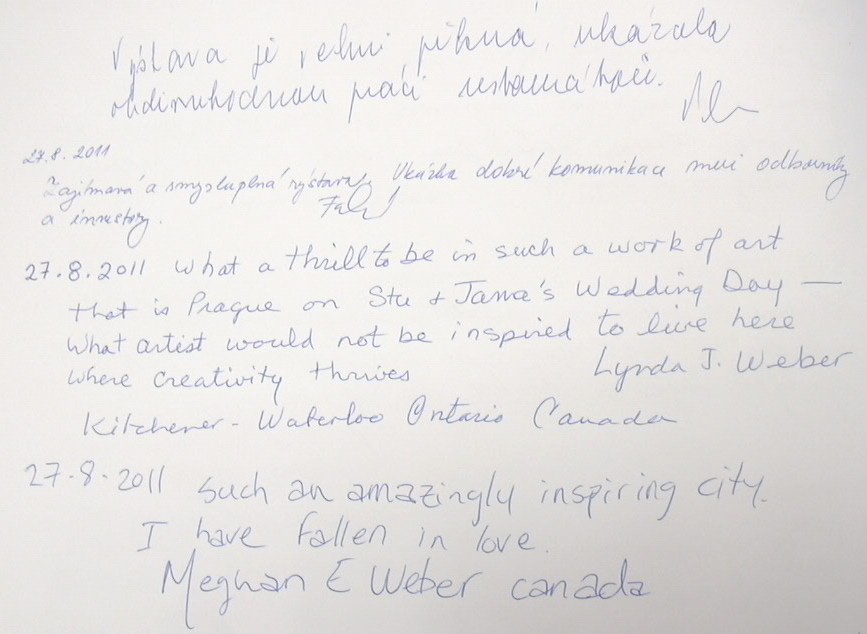 Výstava je velmi pěkná, ukázala
obdivuhodnou práci
27.8.2011
Zajímavá a smysluplná výstava. Ukázka dobré komunikace mezi odborníky
a investory.
27.8.2011 What a thrill to be in such a work of art
that is Prague on Stu & Jana's Wedding Day —
What artist would not be inspired to live here
where creativity thrives Lynda J. Weber
Kitchener - Waterloo Ontario Canada
27.8.2011 Such an amazingly inspiring city.
I have fallen in love.
Meghan E Weber canada